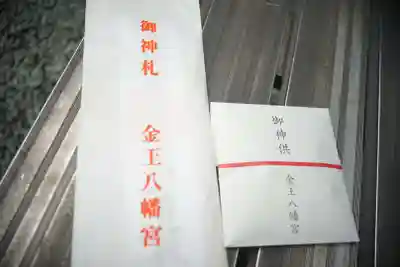 御神札
金王八幡宮
御神供
金王八幡宮